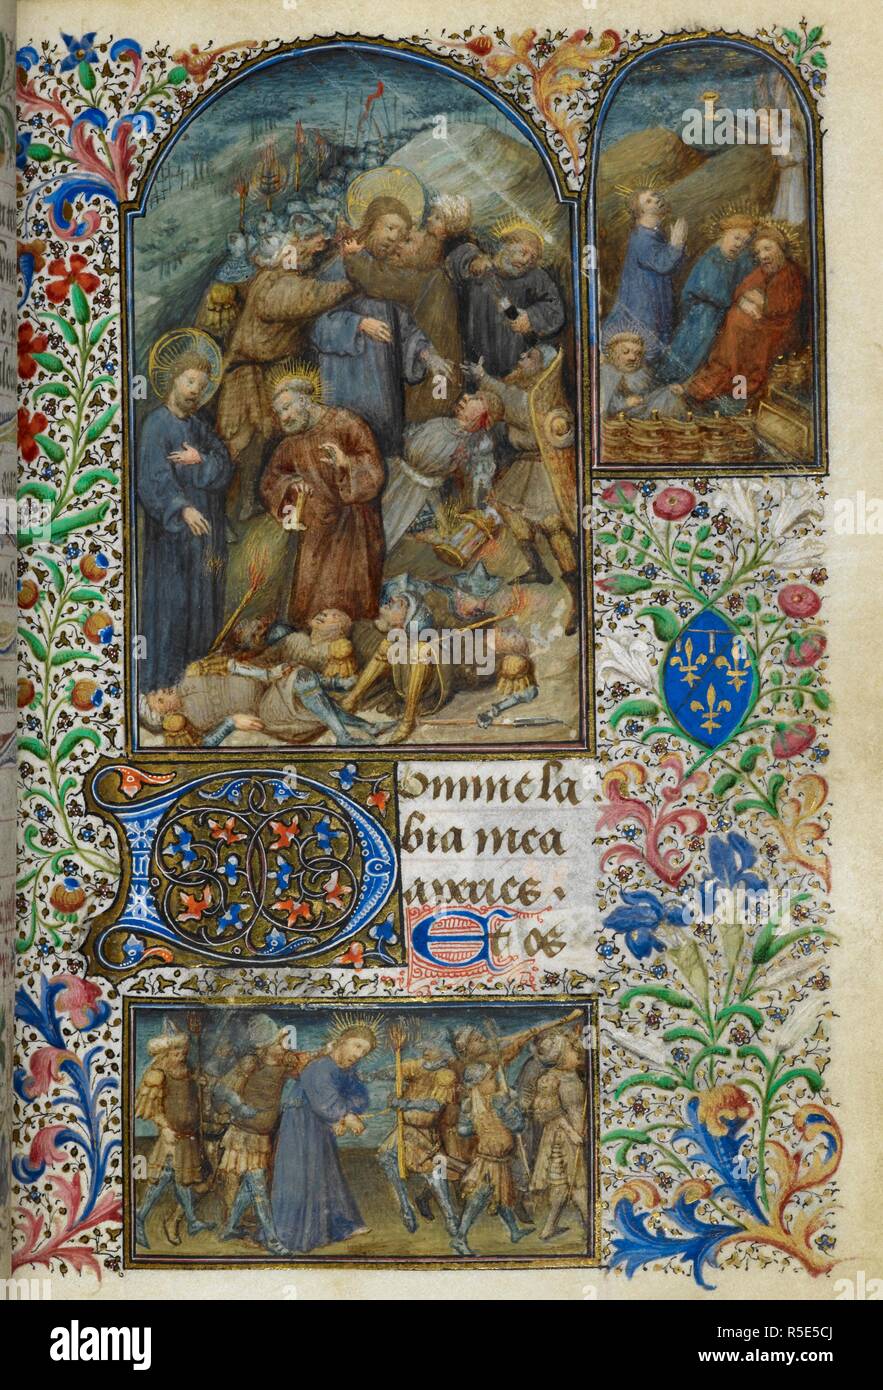 Domine la
bia mea
aperies.
Et os
alamy
Image ID: R5E5CJ
www.alamy.com